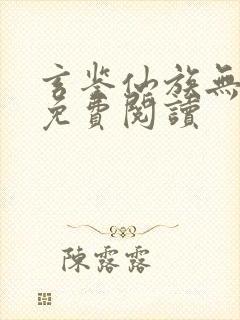 玄鉴仙族無
免費閱讀
陳露露